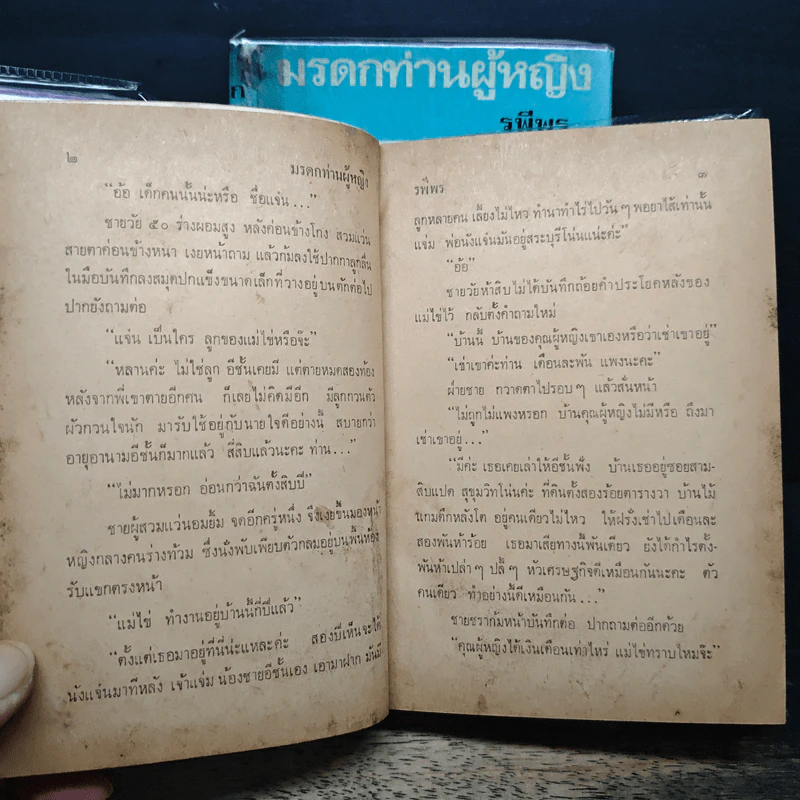 มรดกท่านผู้หญิง
รพีพร
๒
มรดกท่านผู้หญิง
“อ้อ เด็กคนนั้นน่ะหรือ ชื่อแจ๋น...”
ชายวัย ๕๐ ร่างผอมสูง หลังค่อนข้างโกง สวมแว่น
สายตาค่อนข้างหนา เงยหน้าถาม แล้วก้มลงใช้ปากกาลูกลื่น
ในมือบันทึกลงสมุดปกแข็งขนาดเล็กที่วางอยู่บนตักต่อไป
ปากยังถามต่อ
“แจ๋น เป็นใคร ลูกของแม่ไข่หรือจ๊ะ”
“หลานค่ะ ไม่ใช่ลูก อีชั้นเคยมี แต่ตายหมดสองท้อง
หลังจากพี่เขาตายอีกคน ก็เลยไม่คิดมีอีก มีลูกกวนตัว
ผัวกวนใจนัก มารับใช้อยู่กับนายใจดีอย่างนี้ สบายกว่า
อายุอานามอีชั้นก็มากแล้ว สี่สิบแล้วนะคะ ท่าน...”
“ไม่มากหรอก อ่อนกว่าฉันตั้งสิบปี”
ชายผู้สวมแว่นอมยิ้ม จดอีกครู่หนึ่ง จึงเงยขึ้นมองหน้า
หญิงกลางคนร่างท้วม ซึ่งนั่งพับเพียบตัวกลมอยู่บนพื้นห้อง
รับแขกตรงหน้า
“แม่ไข่ ทำงานอยู่บ้านนี้กี่ปีแล้ว”
“ตั้งแต่เธอมาอยู่ที่นี่น่ะแหละค่ะ สองปีเห็นจะได้
นังแจ๋นมาทีหลัง เจ้าแจ่ม น้องชายอีชั้นเอง เอามาฝาก มันมี
รพีพร
๓
ลูกหลายคน เลี้ยงไม่ไหว ทำนาทำไร่ไปวันๆ พอยาไส้เท่านั้น
แจ่ม พ่อนังแจ๋นมันอยู่สระบุรีโน่นแน่ะค่ะ”
“อ้อ”
ชายวัยห้าสิบ ไม่ได้บันทึกถ้อยคำประโยคหลังของ
แม่ไข่ไว้ กลับตั้งคำถามใหม่
“บ้านนี้ บ้านของคุณผู้หญิงเขาเองหรือว่าเช่าเขาอยู่”
“เช่าเขาค่ะท่าน เดือนละพัน แพงนะคะ”
ฝ่ายชาย กวาดตาไปรอบๆ แล้วสั่นหน้า
“ไม่ถูกไม่แพงหรอก บ้านคุณผู้หญิงไม่มีหรือ ถึงมา
เช่าเขาอยู่...”
“มีค่ะ เธอเคยเล่าให้อีชั้นฟัง บ้านเธออยู่ซอยสาม-
สิบแปด สุขุมวิทโน่นค่ะ ที่ดินตั้งสองร้อยตารางวา บ้านไม้
แกมตึกหลังโต อยู่คนเดียวไม่ไหว ให้ฝรั่งเช่าไปเดือนละ
สองพันห้าร้อย เธอมาเสียทางนี้พันเดียว ยังได้กำไรตั้ง-
พันห้าเปล่าๆ ปลี้ๆ หัวเศรษฐกิจดีเหมือนกันนะคะ ตัว
คนเดียว ทำอย่างนี้ดีเหมือนกัน...”
ชายชราก้มหน้าบันทึกต่อ ปากถามต่ออีกด้วย
“คุณผู้หญิงได้เงินเดือนเท่าไหร่ แม่ไข่ทราบไหมจ๊ะ”